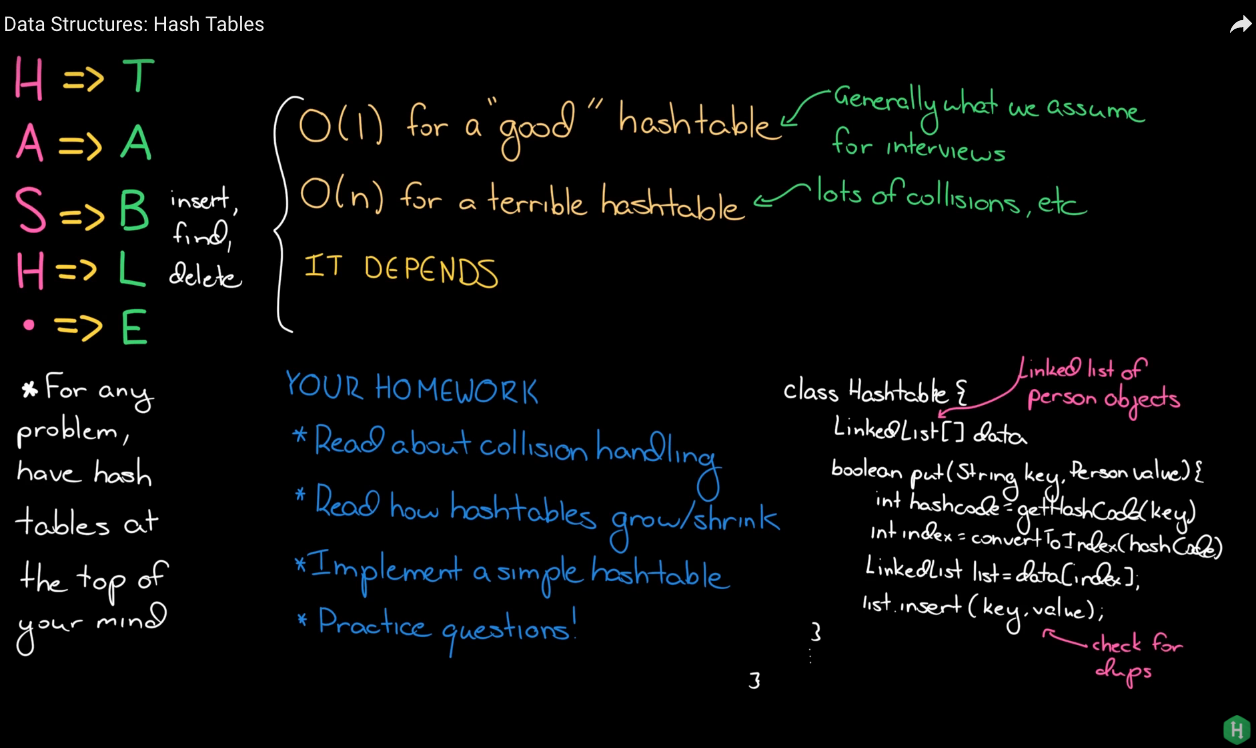 Data Structures: Hash Tables
H => T
A => A
S => B
H => L
• => E
insert,
find,
delete
O(1) for a "good" hashtable
Generally what we assume
for interviews
O(n) for a terrible hashtable
lots of collisions, etc
IT DEPENDS
* For any
problem,
have hash
tables at
the top of
your mind
YOUR HOMEWORK
* Read about collision handling
* Read how hashtables grow/shrink
* Implement a simple hashtable
* Practice questions!
class Hashtable {
Linked list of
person objects
LinkedList[] data
boolean put(String key, Person value) {
int hashcode = getHashCode(key)
int index = convertToIndex(hashCode)
LinkedList list = data[index];
list.insert(key, value);
}
check for
dups
}
H